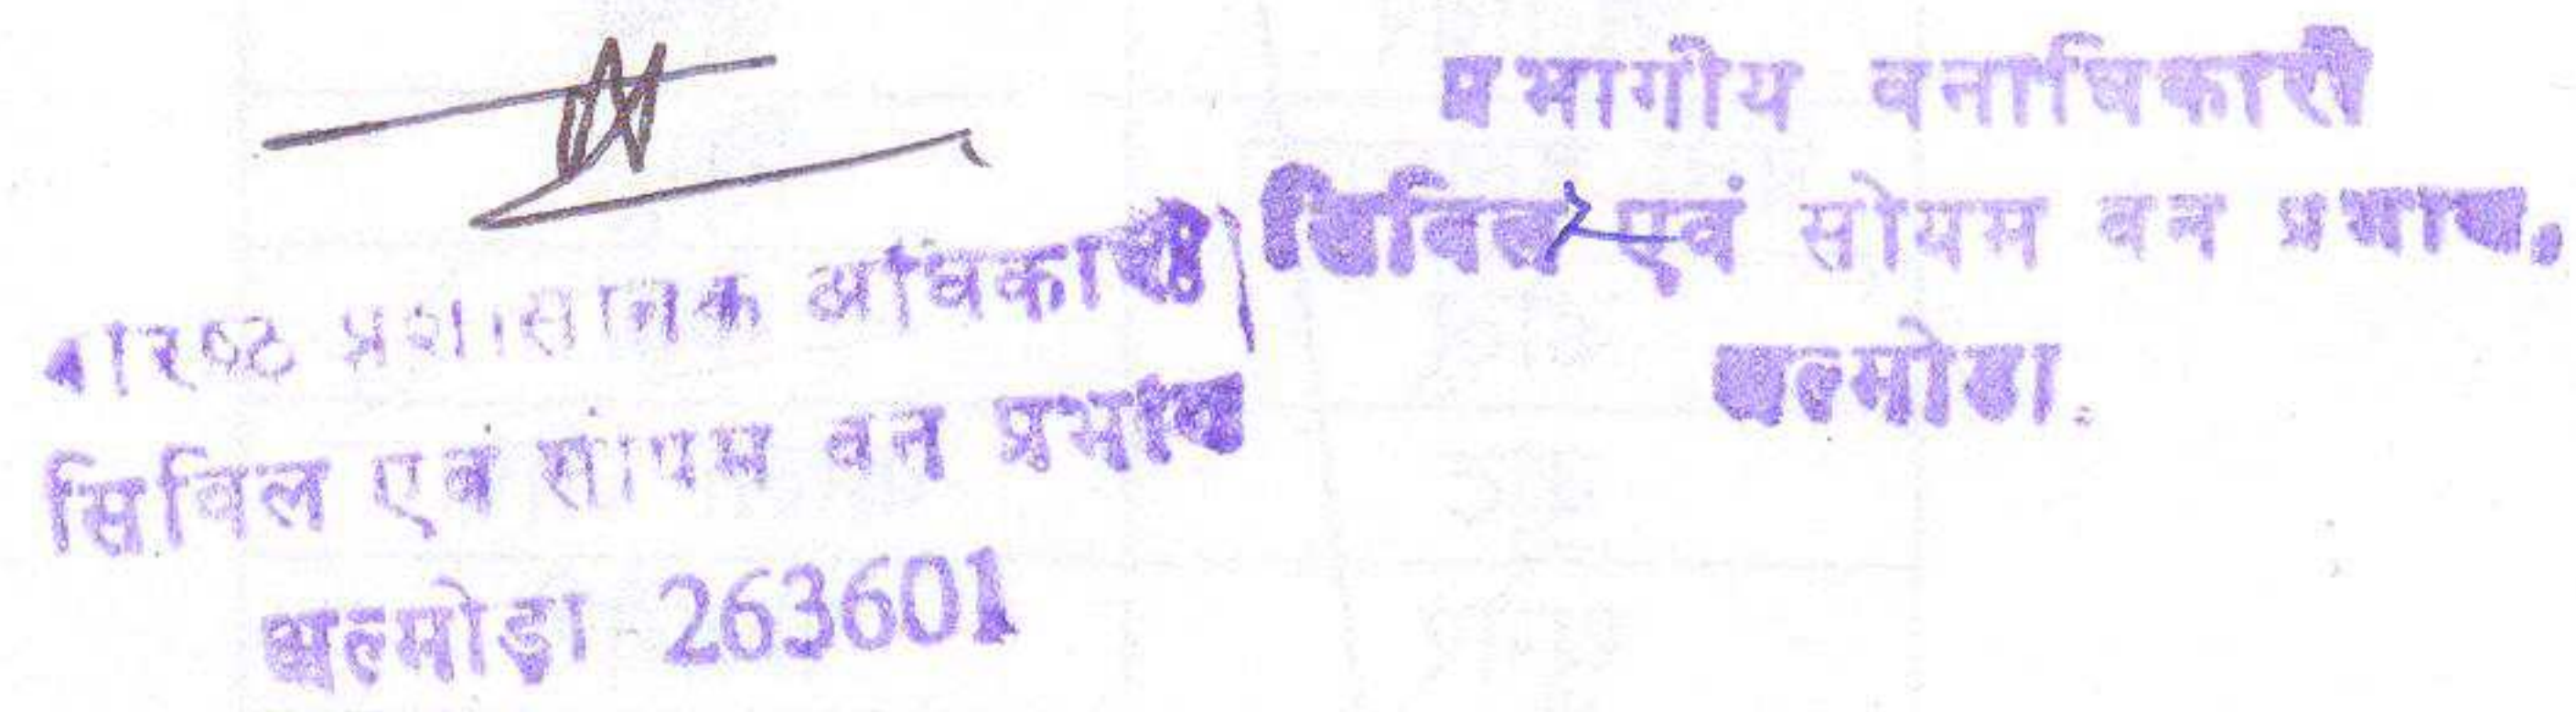 वरिष्ठ प्रशासनिक अधिकारी
सिविल एवं सोयम वन प्रभाग
अल्मोड़ा 263601
प्रभागीय वनाधिकारी
सिविल एवं सोयम वन प्रभाग,
अल्मोडा.